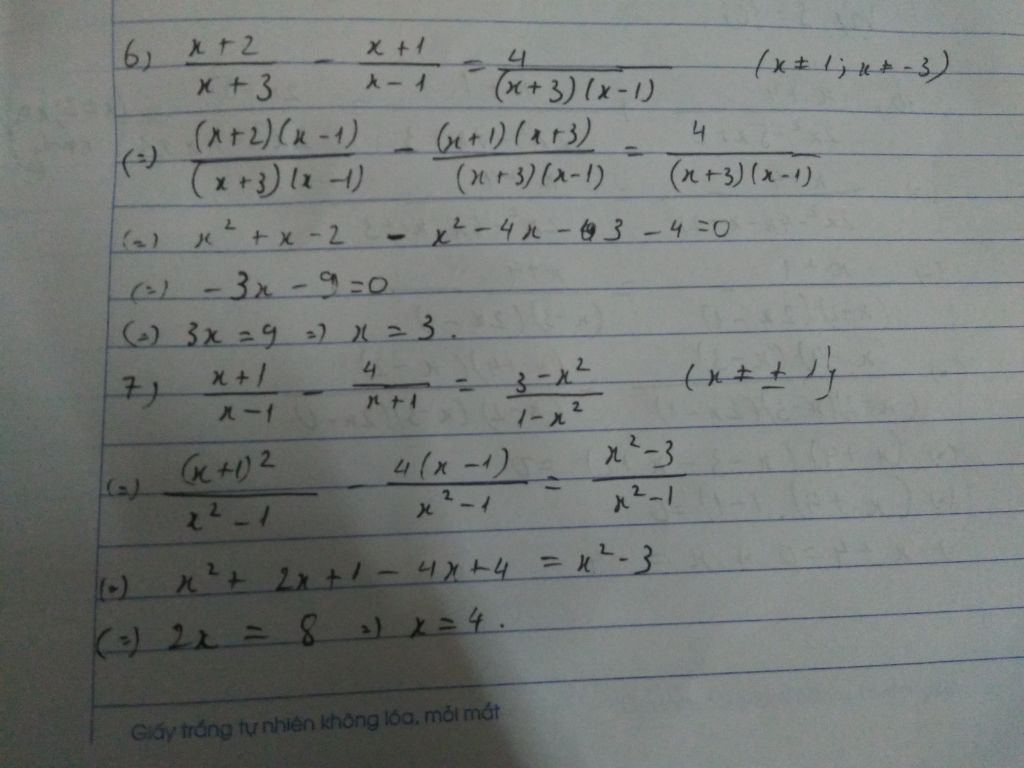 6) \frac{x+2}{x+3} - \frac{x+1}{x-1} = \frac{4}{(x+3)(x-1)} (x ≠ 1; x ≠ -3)
(=) \frac{(x+2)(x-1)}{(x+3)(x-1)} - \frac{(x+1)(x+3)}{(x+3)(x-1)} = \frac{4}{(x+3)(x-1)}
(=) x² + x - 2 - x² - 4x - 3 - 4 = 0
(=) -3x - 9 = 0
(=) 3x = 9 =) x = 3.
7) \frac{x+1}{x-1} - \frac{4}{x+1} = \frac{3-x²}{1-x²} (x ≠ ± 1)
(=) \frac{(x+1)²}{x²-1} - \frac{4(x-1)}{x²-1} = \frac{x²-3}{x²-1}
(=) x² + 2x + 1 - 4x + 4 = x² - 3
(=) 2x = 8 =) x = 4.
Giấy trắng tự nhiên không lóa, mỏi mắt